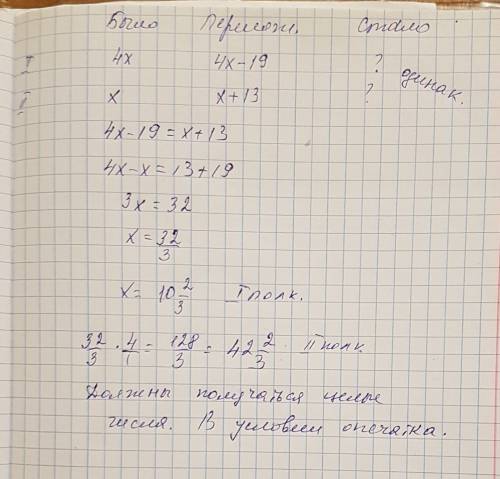 Было Перелож. Стало
I 4x 4x-19 ? одинак.
II x x+13 ?
4x-19=x+13
4x-x=13+19
3x=32
x=32/3
x=10 2/3 I полк.
32/3 · 4/1 = 128/3 = 42 2/3 II полк.
Должны получаться целые
числа. В условии опечатка.